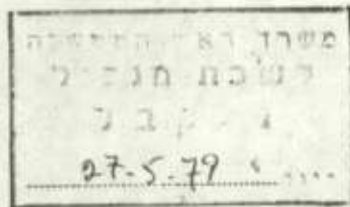 משרד ראש הממשלה
לשכת מנכ"ל
נ ת ק ב ל
27-5-79